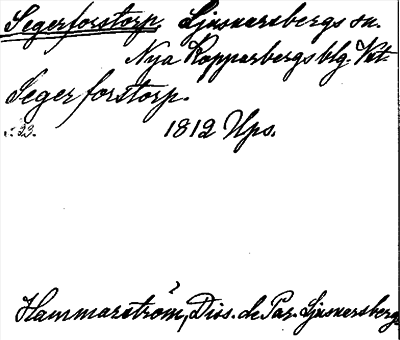 Segerforstorp. Ljusnarsbergs sn.
Nya Kopparbergs blg. Vst-
Segerforstorp.
s. 22. 1812 Ups.
Hammarström, Diss. de Par. Ljusnersberg